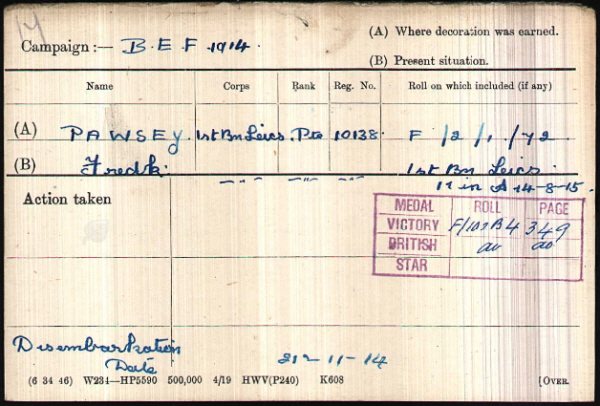 14
Campaign :— B.E.F. 1914.
(A) Where decoration was earned.
(B) Present situation.
Name Corps Rank Reg. No. Roll on which included (if any)
(A) PAWSEY. 1st Bn Leics. Pte 10138. F/2/1/72
(B) Fredk. —"— —"— —"— 1st Bn Leics.
in A 14-8-15.
Action taken
MEDAL ROLL PAGE
VICTORY F/102 B4 349
BRITISH do do
STAR
Disembarkation
Date 2 11-14
(6 34 46) W234—HP5590 500,000 4/19 HWV(P240) K608 [OVER.